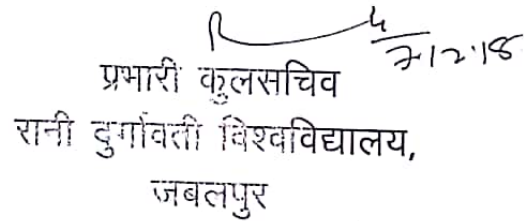 7.12.18
प्रभारी कुलसचिव
रानी दुर्गावती विश्वविद्यालय,
जबलपुर